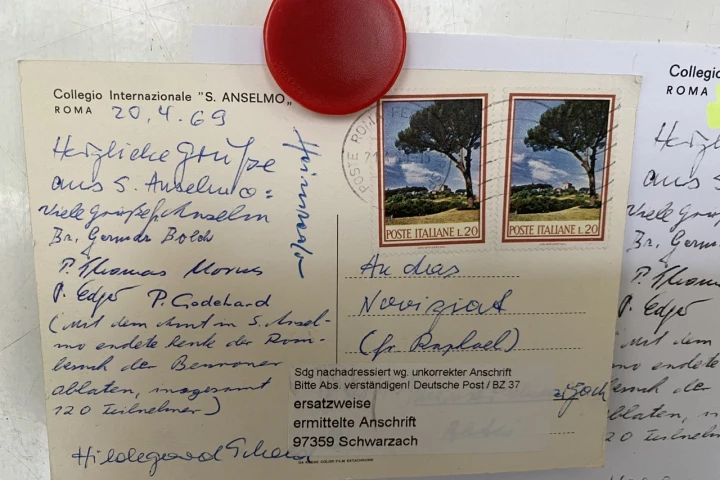 Collegio Internazionale "S. ANSELMO"
ROMA 20.4.69
Herzliche Grüße
aus S. Anselmo:
Viele Grüße, Anselm
Br. German
P. Thomas Morus
P. Edgar P. Godehard
(Mit dem Amt in S. Ansel-
mo endete heute der Rom-
besuch der Beuroner
Oblaten, insgesamt
120 Teilnehmer)
Hildegard
POSTE ITALIANE L.20
POSTE ITALIANE L.20
POSTE ROMA
An das
Noviziat
(fr. Raphael)
Sdg nachadressiert wg. unkorrekter Anschrift
Bitte Abs. verständigen! Deutsche Post / BZ 37
ersatzweise
ermittelte Anschrift
97359 Schwarzach
Collegio
ROMA